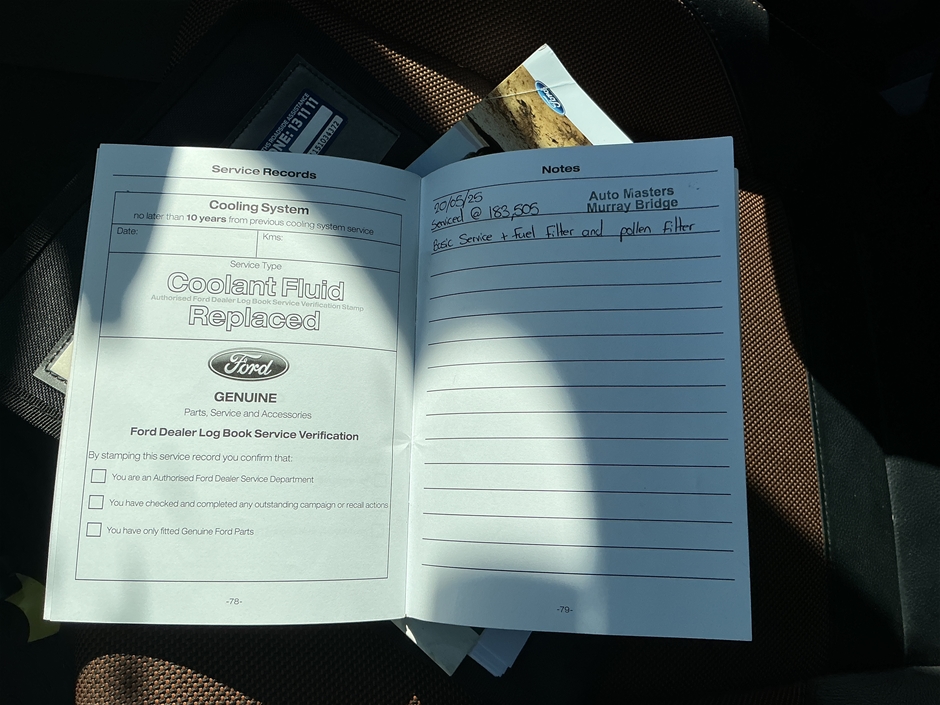 ROADSIDE ASSISTANCE
PHONE: 13 11 11
Ford
Service Records
Cooling System
no later than 10 years from previous cooling system service
Date:
Kms:
Service Type
Coolant Fluid
Authorised Ford Dealer Log Book Service Verification Stamp
Replaced
Ford
GENUINE
Parts, Service and Accessories
Ford Dealer Log Book Service Verification
By stamping this service record you confirm that:
You are an Authorised Ford Dealer Service Department
You have checked and completed any outstanding campaign or recall actions
You have only fitted Genuine Ford Parts
-78-
Notes
20/05/25
Auto Masters
Murray Bridge
Serviced @ 183,505
Basic Service + Fuel Filter and pollen filter
-79-